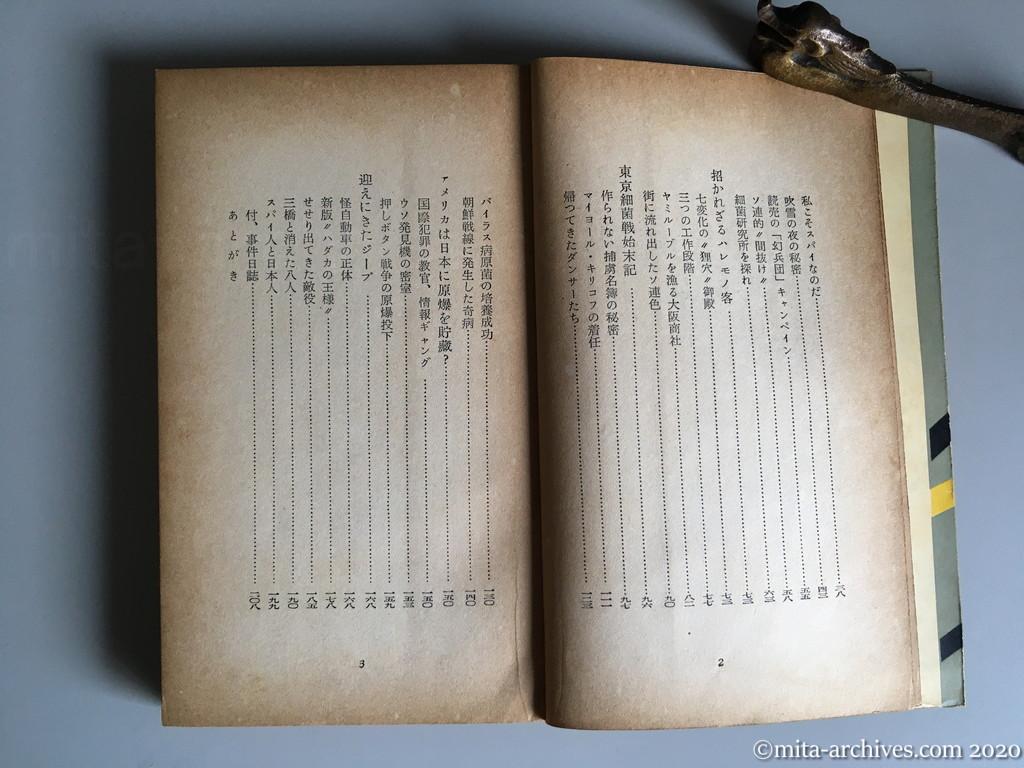 私こそスパイなのだ……三八
吹雪の夜の秘密……四三
読売の「幻兵団」キャンペイン……五五
ソ連的〃間抜け〃……五八
細菌研究所を探れ……六三
招かれざるハレモノ客……七三
七変化の〃狸穴〃御殿……七三
三つの工作段階……七七
ヤミルーブルを漁る大阪商社……八二
街に流れ出したソ連色……九〇
東京細菌戦始末記……九六
作られない捕虜名簿の秘密……九七
マイヨール・キリコフの着任……一一一
帰つてきたダンサーたち……一二三
2
バイラス病原菌の培養成功……一三〇
朝鮮戦線に発生した奇病……一四〇
アメリカは日本に原爆を貯蔵?……一五〇
国際犯罪の教官、情報ギャング……一五〇
ウソ発見機の密室……一五三
押しボタン戦争の原爆投下……一五九
迎えにきたジープ……一六八
怪自動車の正体……一六八
新版〃ハダカの王様〃……一七八
せせり出てきた敵役……一八五
三橋と消えた八人……一九〇
スパイ人と日本人……一九九
付、事件日誌……二〇八
あとがき
3
©mita-archives.com 2020